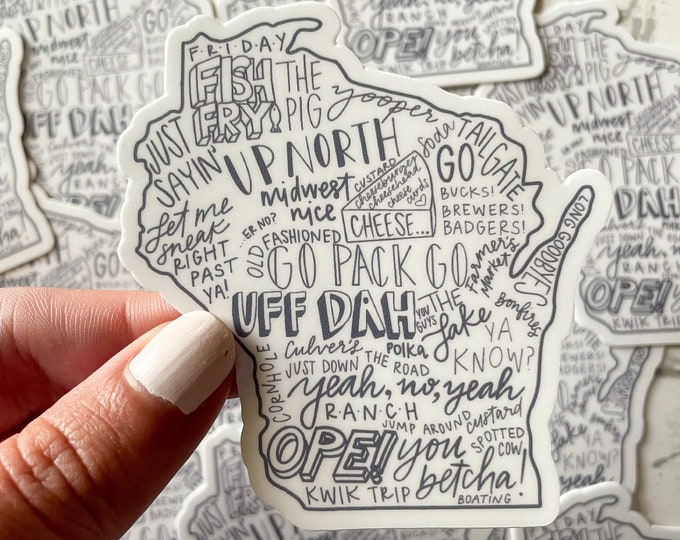 FRIDAY
FISH
FRY
THE
PIG
yooper
JUST
SAYIN'
UP NORTH
soda
TAILGATE
midwest
nice
CUSTARD
cheeseburger
cheesehead
cheese
curds
CHEESE...
GO
BUCKS!
BREWERS!
BADGERS!
LONG GOODBYES
let me
sneak
RIGHT
PAST
YA!
...ER NO?
OLD
FASHIONED
GO PACK GO
Farmer's
Market
UFF DAH
YOU
GUYS
THE
lake
bonfires
YA
KNOW?
CORNHOLE
Culver's
POLKA
JUST DOWN THE ROAD
yeah, no, yeah
RANCH
JUMP AROUND
custard
OPE!
you
betcha!
SPOTTED
COW
KWIK TRIP
BOATING